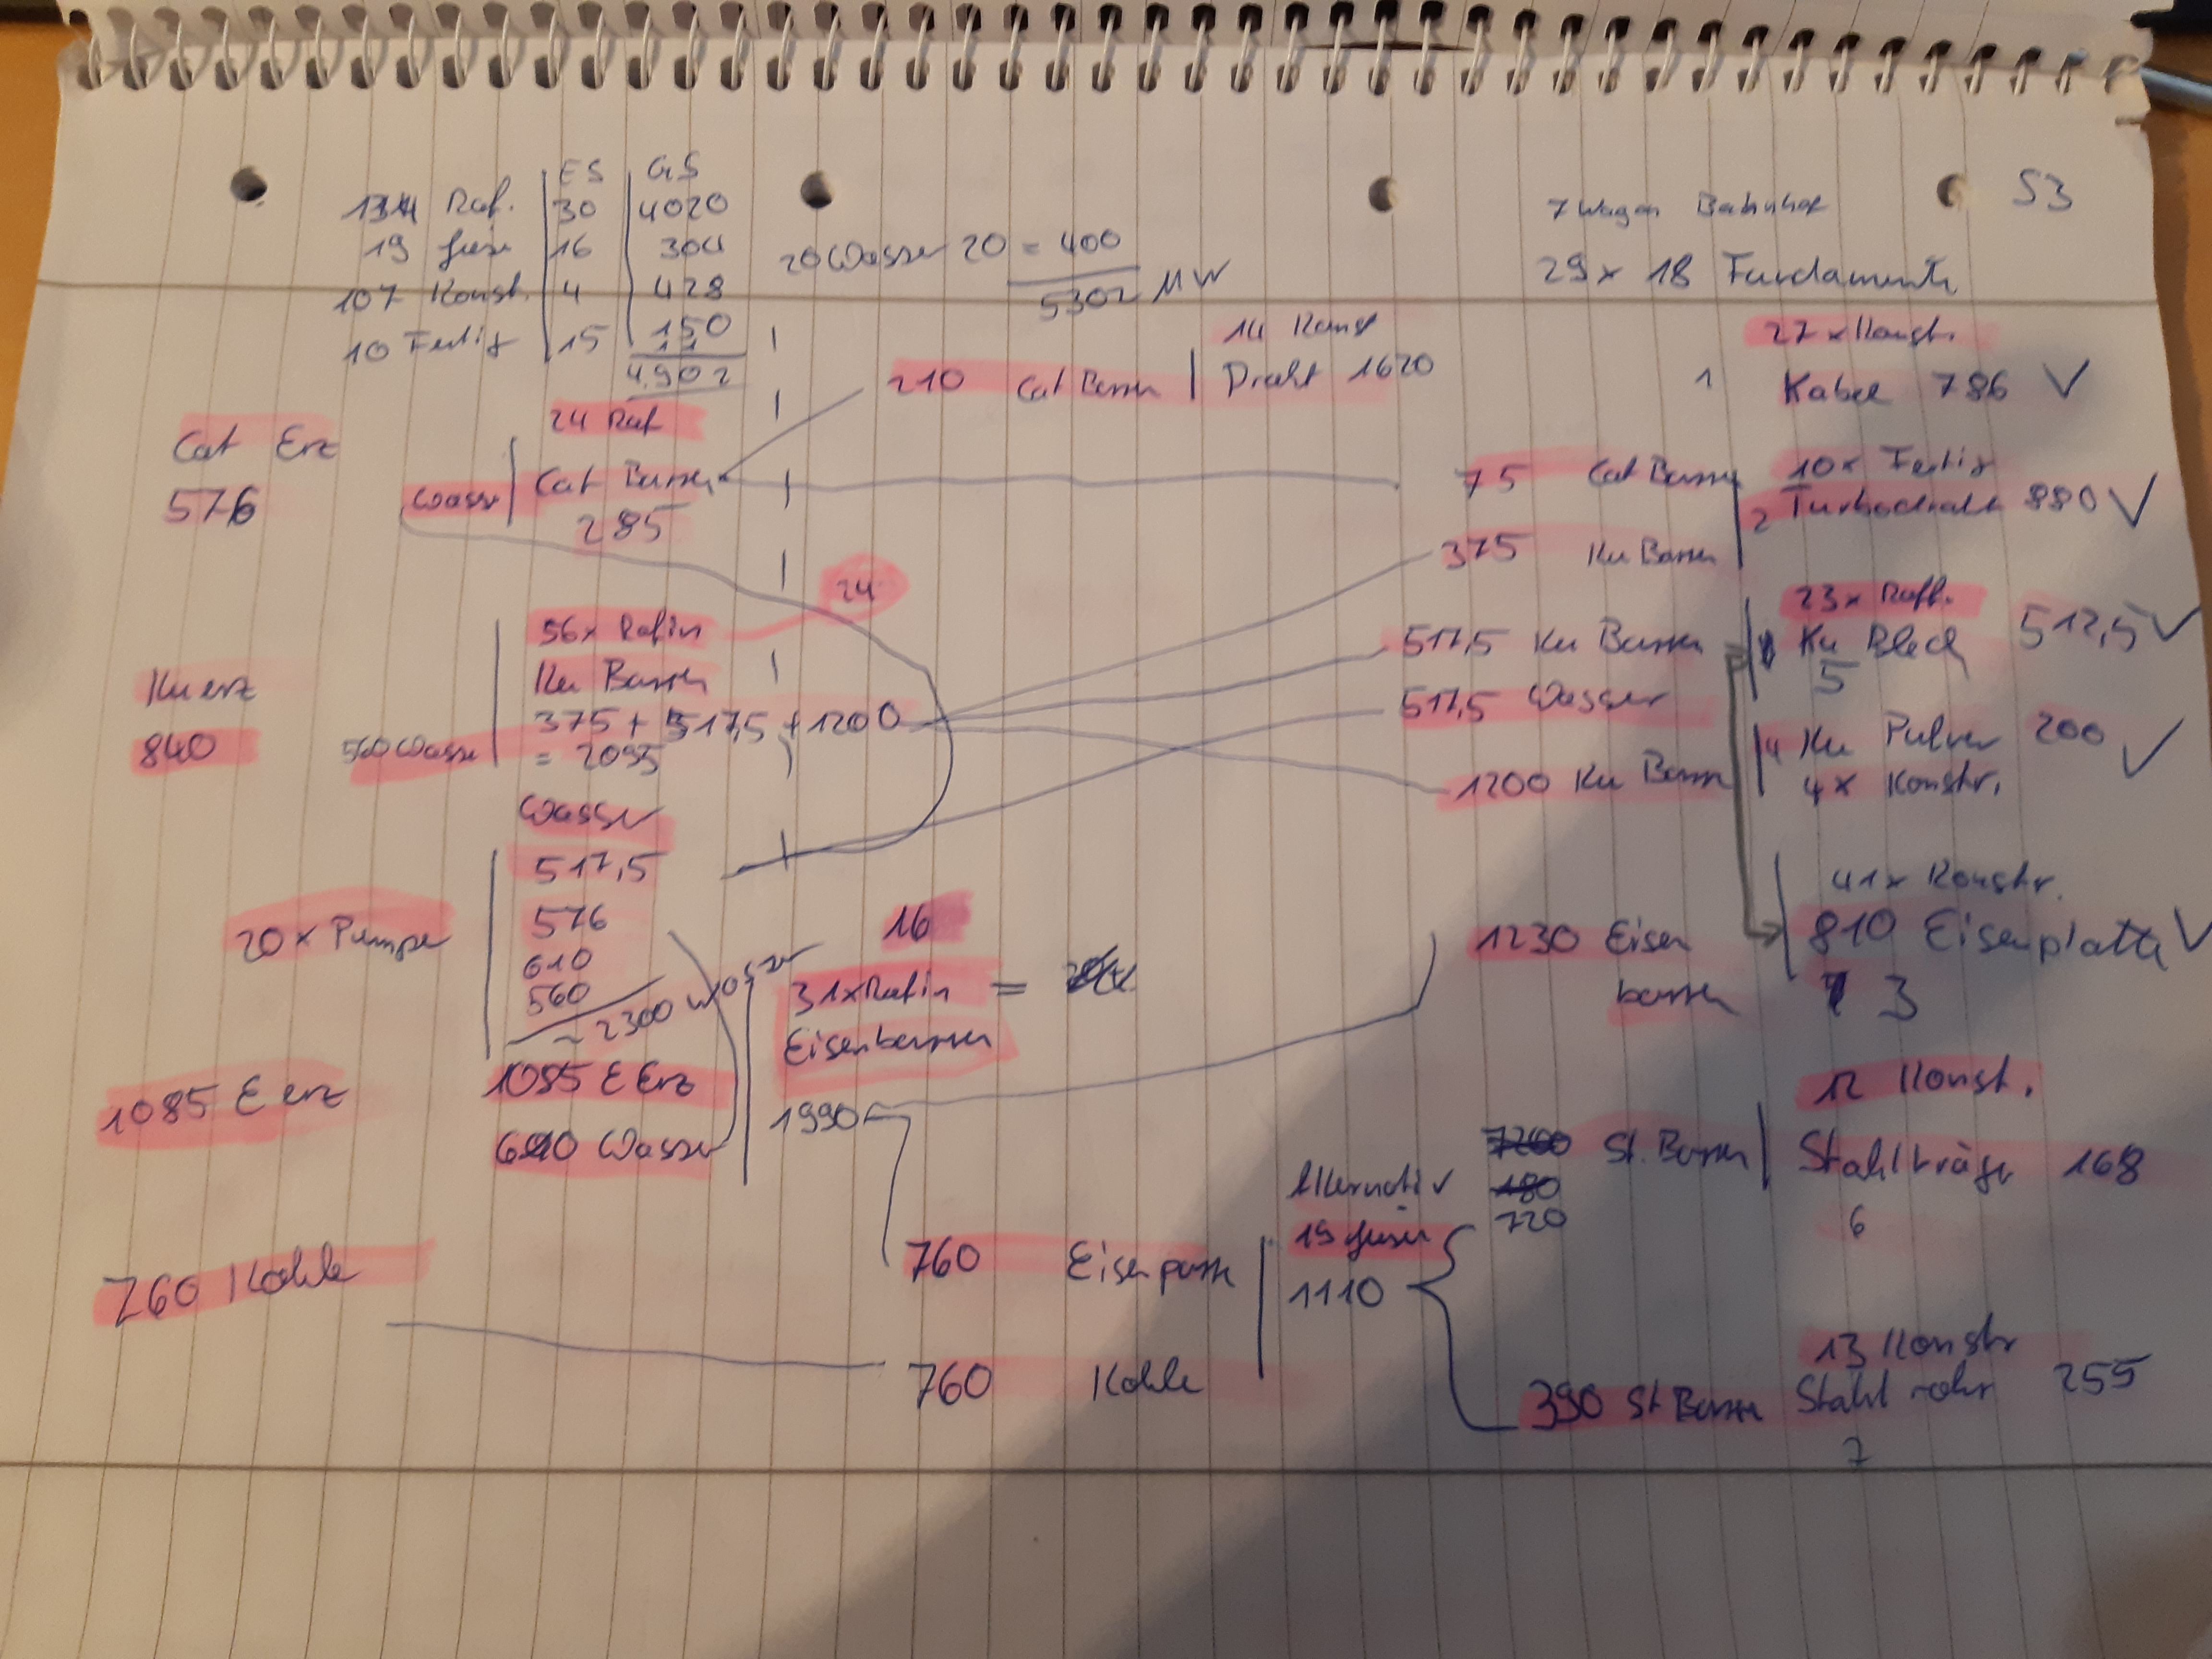 ES GS
134 Raf. 30 4020
19 16 304
107 Konst. 4 428
10 Fertig 15 150
4902
20 Wasser 20 = 400
5302 MW
7 Wagon Bahnhof
S3
29 x 18 Fundamente
14 Konst
210 Cat Barren Draht 1620
27 x Konstr.
1 Kabel 786 ✓
Cat Erz
576
24 Raf
Wasser Cat Barren
285
75 Cat Barren
375 Ku Barren
10x Fertig
2 Turbodraht 880 ✓
24
Ku erz
840
560 Wasser
56x Rafin
Ku Barren
375 + 517,5 + 1200
= 2095
517,5 Ku Barren
517,5 Wasser
23x Raff.
Ku Blech 512,5 ✓
5
1200 Ku Barren
4 Ku Pulver 200 ✓
4x Konstr.
Wasser
20 x Pumpe
517,5
576
610
560
~ 2300 Wasser
16
31x Rafin =
Eisenbarren
1990
1230 Eisen
barren
41x Konstr.
810 Eisenplatte ✓
3
1085 E erz
1085 E Erz
610 Wasser
12 Konst.
7200 St. Barren Stahlträger 168
180
720
6
Alternativ
19
1110
760 Kohle
760 Eisen
760 Kohle
13 Konstr
390 St Barren Stahl rohr 255
7